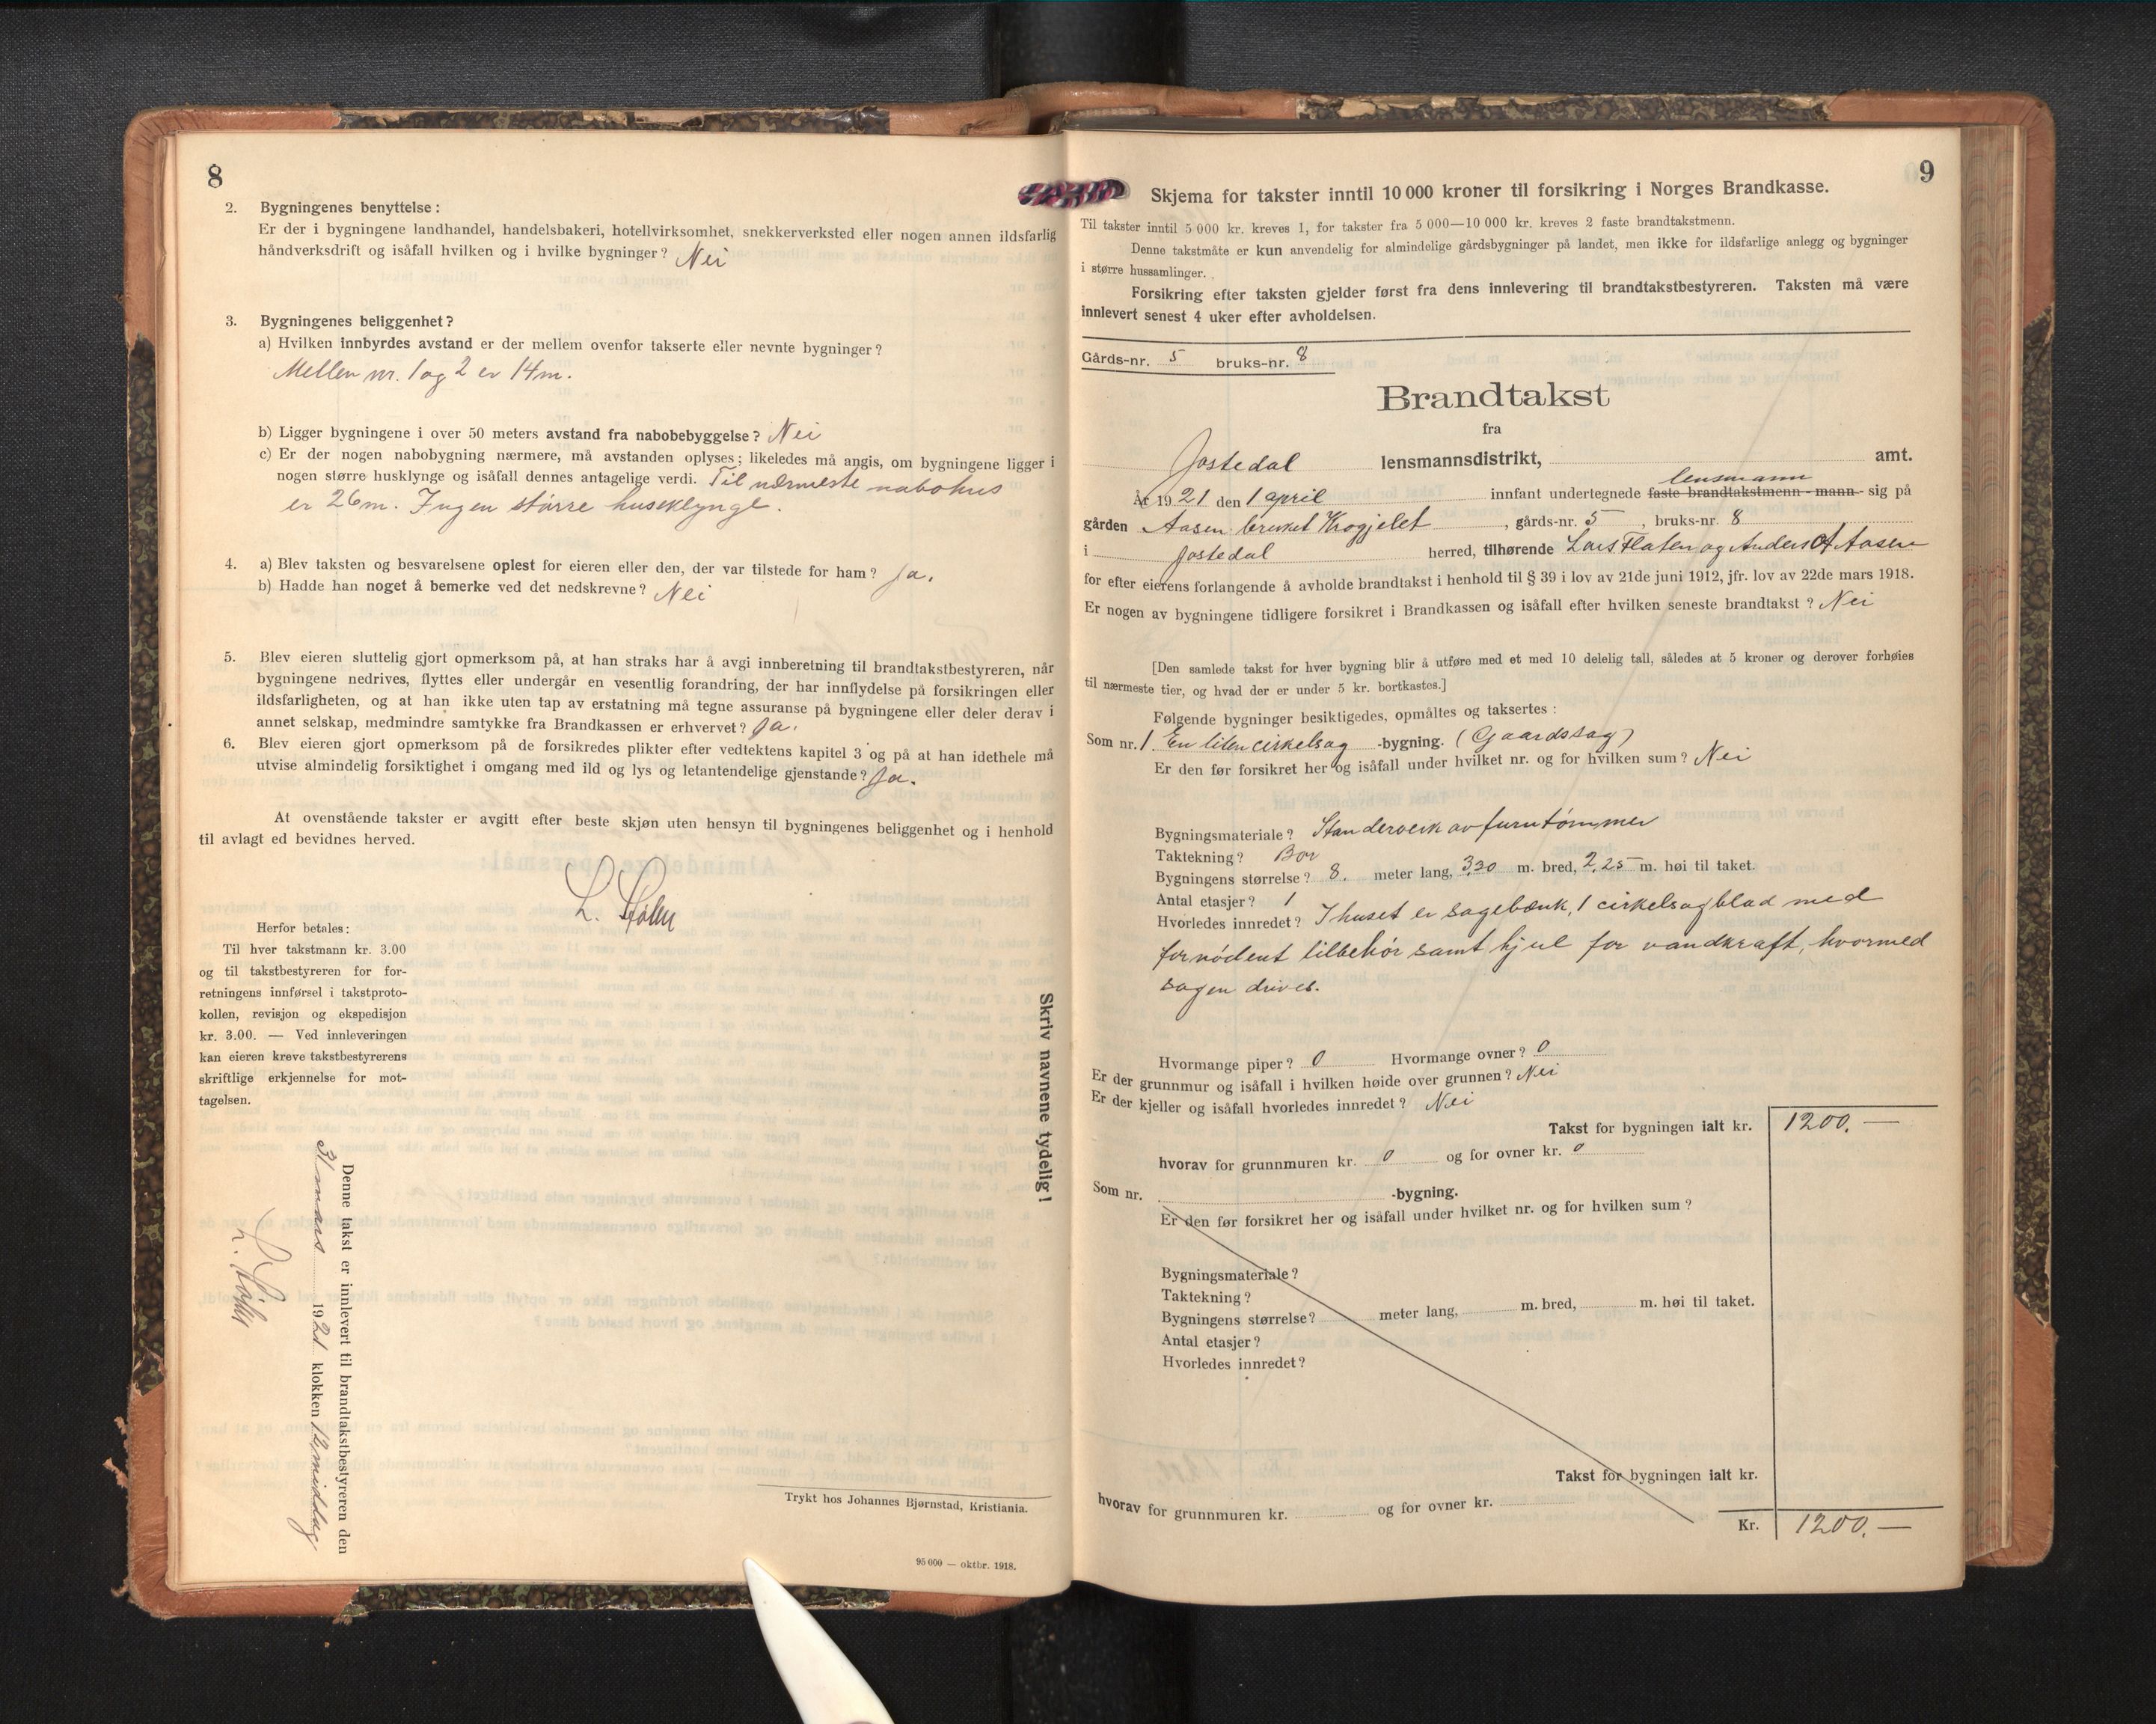 8
2. Bygningenes benyttelse:
Er der i bygningene landhandel, handelsbakeri, hotellvirksomhet, snekkerverksted eller nogen annen ildsfarlig
håndverksdrift og isåfall hvilken og i hvilke bygninger? Nei
3. Bygningenes beliggenhet?
a) Hvilken innbyrdes avstand er der mellem ovenfor takserte eller nevnte bygninger?
Mellen nr. 1 og 2 er 14 m.
b) Ligger bygningene i over 50 meters avstand fra nabobebyggelse? Nei
c) Er der nogen nabobygning nærmere, må avstanden oplyses; likeledes må angis, om bygningene ligger i
nogen større husklynge og isåfall dennes antagelige verdi. Til nærmeste nabohus
er 26 m. Ingen større huseklynge.
4. a) Blev taksten og besvarelsene oplest for eieren eller den, der var tilstede for ham? Ja.
b) Hadde han noget å bemerke ved det nedskrevne? Nei
5. Blev eieren sluttelig gjort opmerksom på, at han straks har å avgi innberetning til brandtakstbestyreren, når
bygningene nedrives, flyttes eller undergår en vesentlig forandring, der har innflydelse på forsikringen eller
ildsfarligheten, og at han ikke uten tap av erstatning må tegne assuranse på bygningene eller deler derav i
annet selskap, medmindre samtykke fra Brandkassen er erhvervet? Ja.
6. Blev eieren gjort opmerksom på de forsikredes plikter efter vedtektens kapitel 3 og på at han idethele må
utvise almindelig forsiktighet i omgang med ild og lys og letantendelige gjenstande? Ja.
At ovenstående takster er avgitt efter beste skjøn uten hensyn til bygningenes beliggenhet og i henhold
til avlagt ed bevidnes herved.
Herfor betales:
Til hver takstmann kr. 3.00
og til takstbestyreren for for-
retningens innførsel i takstproto-
kollen, revisjon og ekspedisjon
kr. 3.00. — Ved innleveringen
kan eieren kreve takstbestyrerens
skriftlige erkjennelse for mot-
tagelsen.
Skriv navnene tydelig!
Denne takst er innlevert til brandtakstbestyreren den
31 mars 1921 klokken 12 middag
Trykt hos Johannes Bjørnstad, Kristiania.
95 000 — oktbr. 1918.
9
Skjema for takster inntil 10 000 kroner til forsikring i Norges Brandkasse.
Til takster inntil 5 000 kr. kreves 1, for takster fra 5 000—10 000 kr. kreves 2 faste brandtakstmenn.
Denne takstmåte er kun anvendelig for almindelige gårdsbygninger på landet, men ikke for ildsfarlige anlegg og bygninger
i større hussamlinger.
Forsikring efter taksten gjelder først fra dens innlevering til brandtakstbestyreren. Taksten må være
innlevert senest 4 uker efter avholdelsen.
Gårds-nr. 5 bruks-nr. 8
Brandtakst
fra
Jostedal lensmannsdistrikt, amt.
lensmann
År 1921 den 1 april innfant undertegnede faste brandtakstmenn - mann - sig på
gården Aasen bruket Krogjelet, gårds-nr. 5, bruks-nr. 8
i Jostedal herred, tilhørende Lars Flaten og Anders A Aasen
for efter eierens forlangende å avholde brandtakst i henhold til § 39 i lov av 21de juni 1912, jfr. lov av 22de mars 1918.
Er nogen av bygningene tidligere forsikret i Brandkassen og isåfall efter hvilken seneste brandtakst? Nei
[Den samlede takst for hver bygning blir å utføre med et med 10 delelig tall, således at 5 kroner og derover forhøies
til nærmeste tier, og hvad der er under 5 kr. bortkastes.]
Følgende bygninger besiktigedes, opmåltes og taksertes:
Som nr. 1. En liten cirkelsag -bygning. (Gaardssag)
Er den før forsikret her og isåfall under hvilket nr. og for hvilken sum? Nei
Bygningsmateriale? Standerverk av furutømmer
Taktekning? Bor
Bygningens størrelse? 8. meter lang, 3,30 m. bred, 2,25 m. høi til taket.
Antal etasjer? 1
Hvorledes innredet? I huset er sagebænk, 1 cirkelsagblad med
fornødent tilbehør samt hjul for vandkraft, hvormed
sagen drives.
Hvormange piper? 0 Hvormange ovner? 0
Er der grunnmur og isåfall i hvilken høide over grunnen? Nei
Er der kjeller og isåfall hvorledes innredet? Nei
Takst for bygningen ialt kr. 1200.—
hvorav for grunnmuren kr. 0 og for ovner kr. 0
Som nr. -bygning.
Er den før forsikret her og isåfall under hvilket nr. og for hvilken sum?
Bygningsmateriale?
Taktekning?
Bygningens størrelse? meter lang, m. bred, m. høi til taket.
Antal etasjer?
Hvorledes innredet?
Takst for bygningen ialt kr.
hvorav for grunnmuren kr. og for ovner kr.
Kr. 1200.—